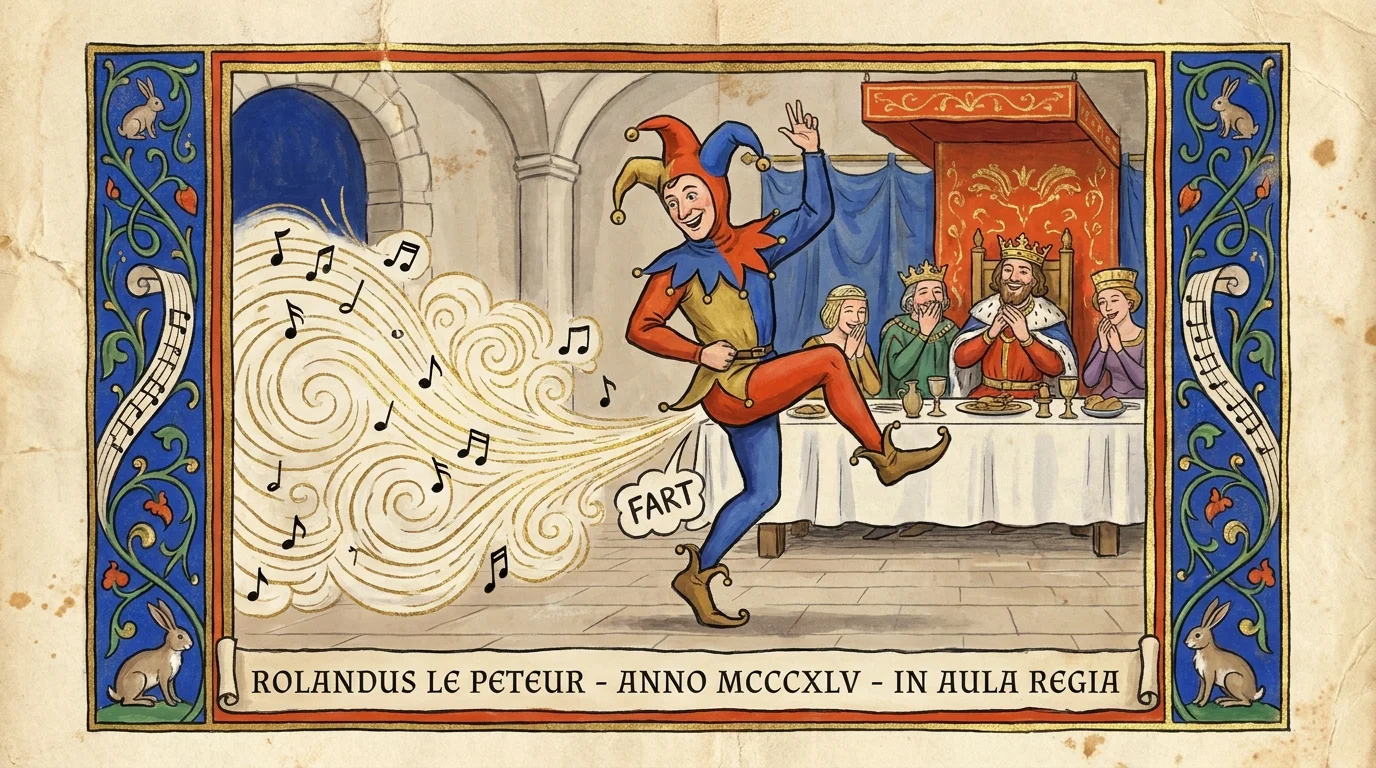 FART
ROLANDUS LE PETEUR - ANNO MCCCXLV - IN AULA REGIA